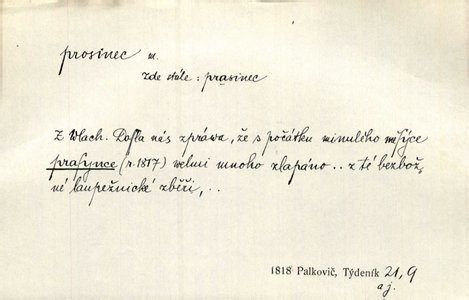 prosinec m.
zde stále: prasinec
Z Wlach. Dossla nás zpráwa, že s počátku minulého měsýce
prasynce (r. 1817) welmi mnoho zlapáno.. z té bezbož,
né laupežnické zběři,..
1818 Palkovič, Týdeník 21, 9
a j.